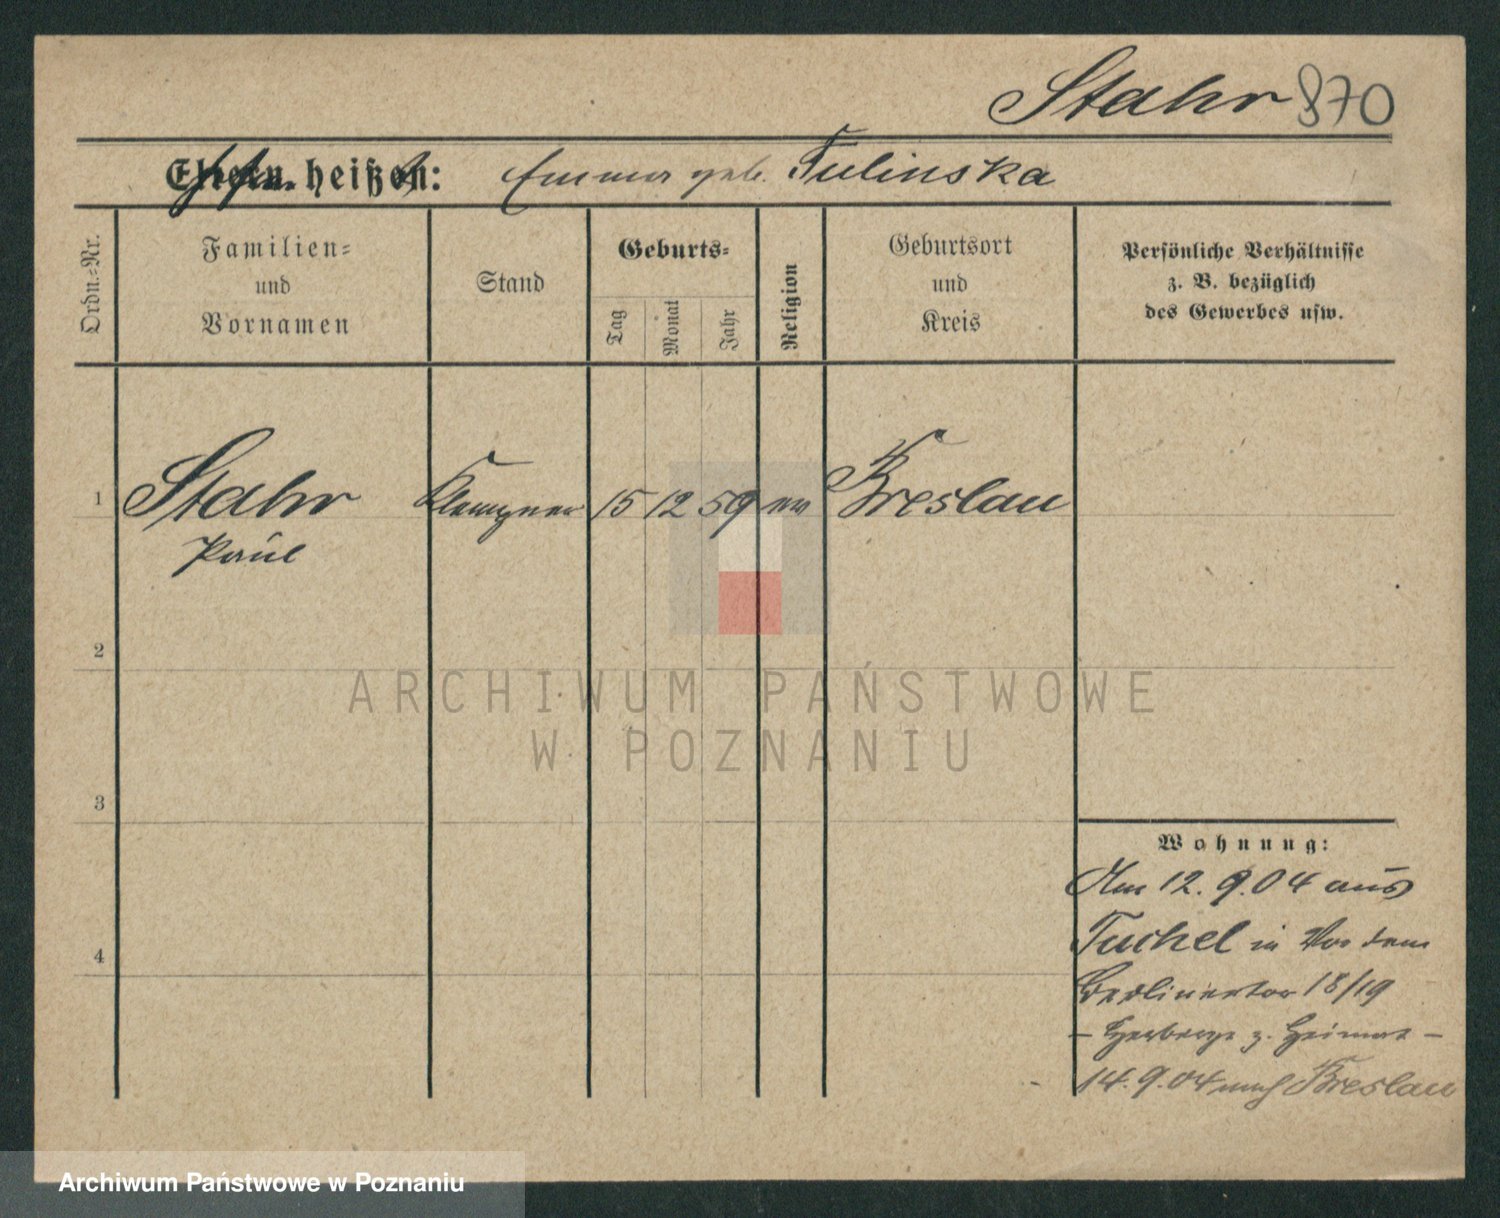 Stahr 870
Eltern heißen: Emma geb. Tulinska
Ordn.-Nr.
Familien-
und
Vornamen
Stand
Geburts-
Tag
Monat
Jahr
Religion
Geburtsort
und
Kreis
Persönliche Verhältnisse
z. B. bezüglich
des Gewerbes usw.
1 Stahr Klempner 15 12 59 ev Breslau
Paul
2
ARCHIWUM PAŃSTWOWE
W POZNANIU
3
Wohnung:
Am 12. 9. 04 aus
Tuchel in Vor dem
4
Berlinertor 18/19
- Herberge z. Heimat -
14. 9. 04 nach Breslau
Archiwum Państwowe w Poznaniu